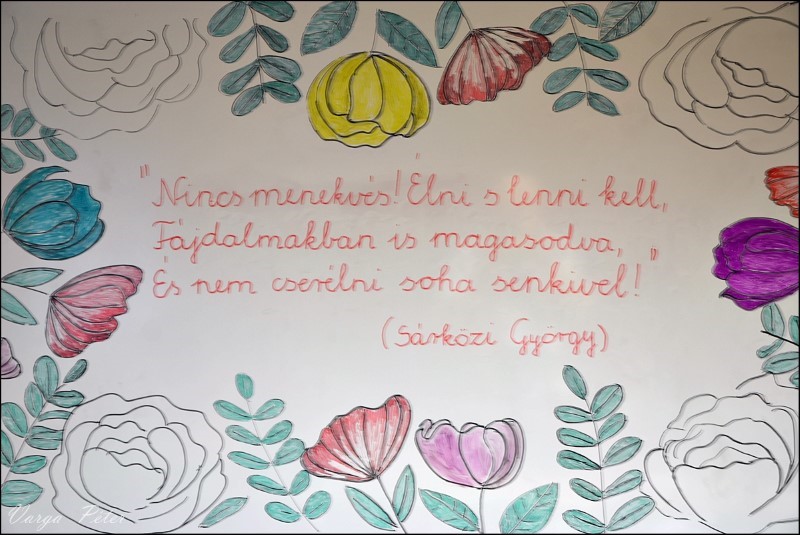 "Nincs menekvés! Élni s lenni kell,
Fájdalmakban is magasodva,
És nem cserélni soha senkivel!"
(Sárközi György)
Varga Péter